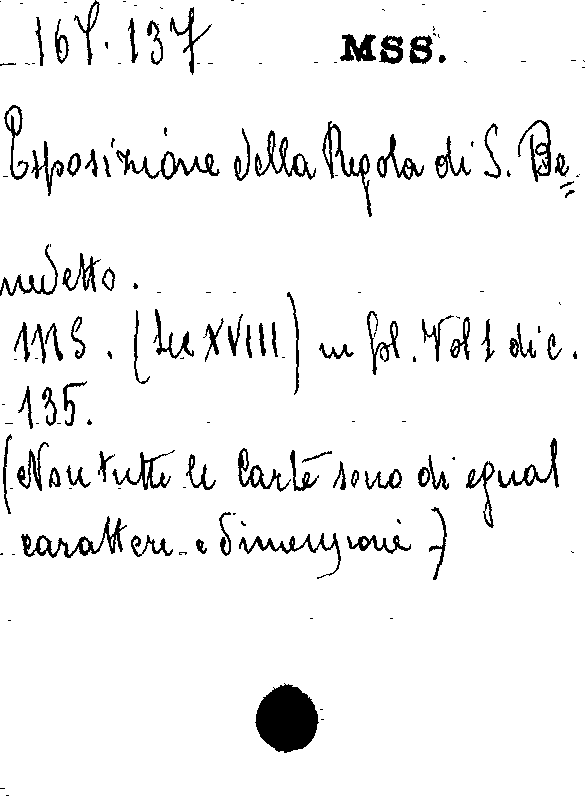 164.137 MSS.
Esposizione della Regola di S. Be=
nedetto.
MS. (Sec XVIII) in fol. Vol 1 di c.
135.
(Non tutte le Carte sono di egual
carattere e dimensione)